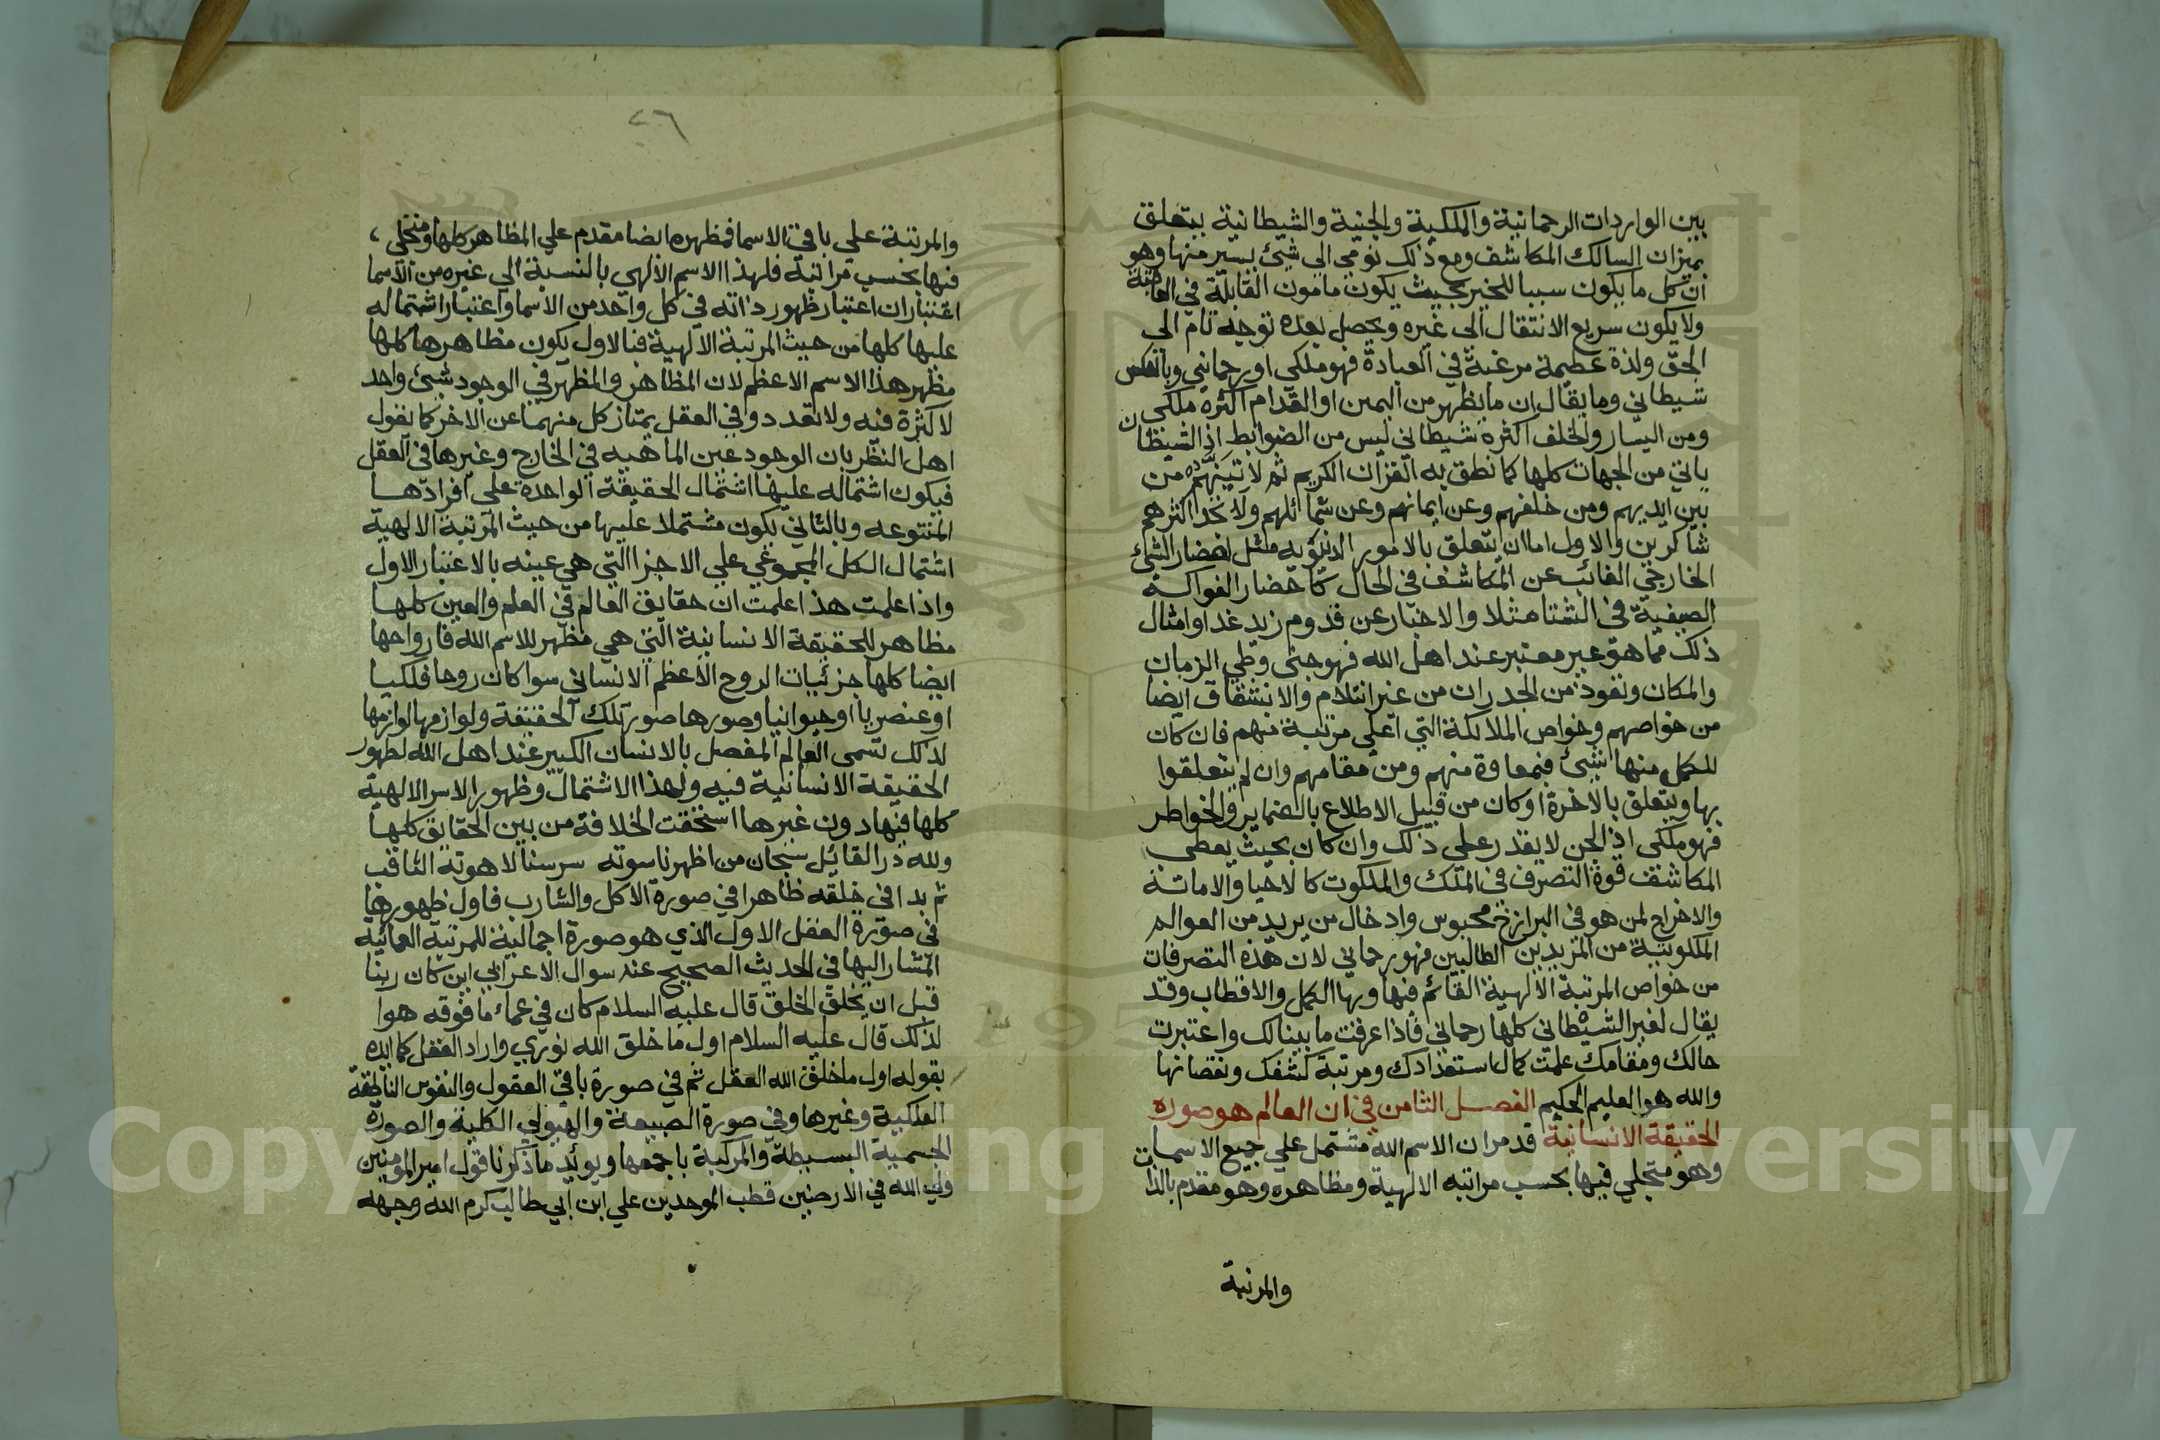 بين الواردات الرحمانية والملكية والجنية والشيطانية يتعلق
بميزان السالك المكاشف ومع ذلك نومي الي شيئ يسير منها وهو
ان كل ما يكون سببا للخير بحيث يكون مامون الغايلة في العاقبة
ولا يكون سريع الانتقال الى غيره ويحصل بعده توجه تام الى
الحق ولذة عظيمة مرغبة في العبادة فهو ملكي او رحماني وبالعكس
شيطاني وما يقال ان ما يظهر من اليمين او القدام اكثره ملكي
ومن اليسار والخلف اكثره شيطاني ليس من الضوابط اذ الشيطان
ياتي من الجهات كلها كما نطق به القران الكريم ثم لاتينهم من
بين ايديهم ومن خلفهم وعن ايمانهم وعن شمائلهم ولا تجد اكثرهم
شاكرين والاول اما ان يتعلق بالامور الدنيويه مثل احضار الشئ
الخارجي الغائب عن المكاشف في الحال كاحضار الفواكه
الصيفية في الشتا مثلا والاخبار عن قدوم زيد غدا وامثال
ذلك مما هو غير معتبر عند اهل الله فهو جني وطي الزمان
والمكان ونفوذ من الجدران من غير انثلام والانشقاق ايضا
من خواصهم وخواص الملائكة التي اعلي مرتبة منهم فان كان
للكمل منها شئ فبمعاوة منهم ومن مقامهم وان لم يتعلقوا
بها ويتعلق بالاخرة او كان من قبيل الاطلاع بالضماير والخواطر
فهو ملكي اذ الجن لا يقدر علي ذلك وان كان بحيث يعطي
المكاشف قوة التصرف في الملك والملكوت كالاحيا والاماتة
والاخراج لمن هو في البرازخ محبوس وادخال من يريد من العوالم
الملكوتية من المريدين الطالبين فهو رحماني لان هذه التصرفات
من خواص المرتبة الالهية القائم فيها وبها الكمل والاقطاب وقد
يقال لغير الشيطاني كلها رحماني فاذا عرفت ما بينا لك واعتبرت
حالك ومقامك علمت كمال استعدادك ومرتبة كشفك ونقصانها
والله هو العليم الحكيم الفصل الثامن في ان العالم هو صوره
الحقيقة الانسانية قد مر ان الاسم الله مشتمل علي جميع الاسما
وهو متجلي فيها بحسب مراتبه الالهية ومظاهره وهو مقدم بالذات
والمرتبة
٢٦
والمرتبة علي باقي الاسما فمظهره ايضا مقدم علي المظاهر كلها ومتجلي
فيها بحسب مراتبه فلهذا الاسم الالهي بالنسبة الي غيره من الاسما
اعتباران اعتبار ظهور ذاته في كل واحد من الاسما واعتبار اشتماله
عليها كلها من حيث المرتبة الالهية فبالاول يكون مظاهرها كلها
مظهر هذا الاسم الاعظم لان المظاهر والمظهر في الوجود شيئ واحد
لا كثرة فيه ولا تعدد وفي العقل يمتاز كل منهما عن الاخر كما يقول
اهل النظر بان الوجود عين الماهيه في الخارج وغيرها في العقل
فيكون اشتماله عليها اشتمال الحقيقة الواحدة علي افرادها
المتنوعه وبالثاني يكون مشتملا عليها من حيث المرتبة الالهية
اشتمال الكل المجموعي علي الاجزا التي هي عينه بالاعتبار الاول
واذا علمت هذا علمت ان حقايق العالم في العلم والعين كلها
مظاهر للحقيقة الانسانية التي هي مظهر للاسم الله فارواحها
ايضا كلها جزئيات الروح الاعظم الانساني سوا كان روحا فلكيا
او عنصريا او حيوانيا وصورها صور تلك الحقيقة ولوازمها لوازمها
لذلك تسمى العالم المفصل بالانسان الكبير عند اهل الله لظهور
الحقيقة الانسانية فيه ولهذا الاشتمال وظهور الاسر الالهية
كلها فيها دون غيرها استحقت الخلافة من بين الحقايق كلها
ولله در القائل سبحان من اظهر ناسوته سر سنا لاهوته الثاقب
ثم بدا في خلقه ظاهرا في صورة الاكل والشارب فاول ظهورها
في صورة العقل الاول الذي هو صورة اجمالية للمرتبة العمائية
المشار اليها في الحديث الصحيح عند سوال الاعرابي اين كان ربنا
قبل ان يخلق الخلق قال عليه السلام كان في عماء ما فوقه هوا
لذلك قال عليه السلام اول ما خلق الله نوري واراد العقل كما ايده
بقوله اول ما خلق الله العقل ثم في صورة باقي العقول والنفوس الناطقة
الفلكية وغيرها وفي صورة الصبيعة والهيولي الكلية والصورة
الجسمية البسيطة والمركبة باجمعها ويوئد ما ذكرنا قول امير المومنين
ولي الله في الارضين قطب الموحدين علي ابن ابي طالب كرم الله وجهه
Copy University